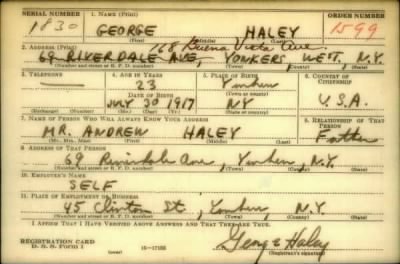 SERIAL NUMBER 1. NAME (Print) ORDER NUMBER
1830 GEORGE HALEY 1599
(First) (Middle) (Last)
168 Buena Vista Ave.
2. ADDRESS (Print)
69 RIVERDALE AVE, YONKERS, WEST, N.Y.
(Number and street or R. F. D. number) (Town) (County) (State)
3. TELEPHONE 4. AGE IN YEARS 5. PLACE OF BIRTH 6. COUNTRY OF CITIZENSHIP
23 Yonkers
DATE OF BIRTH (Town or county)
JULY 30 1917 NY U.S.A.
(Exchange) (Number) (Mo.) (Day) (Yr.) (State or country)
7. NAME OF PERSON WHO WILL ALWAYS KNOW YOUR ADDRESS 8. RELATIONSHIP OF THAT PERSON
MR. ANDREW HALEY Father
(Mr., Mrs., Miss) (First) (Middle) (Last)
9. ADDRESS OF THAT PERSON
69 Riverdale Ave, Yonkers, N.Y.
(Number and street or R. F. D. number) (Town) (County) (State)
10. EMPLOYER'S NAME
SELF
11. PLACE OF EMPLOYMENT OR BUSINESS
45 Clinton St, Yonkers, N.Y.
(Number and street or R. F. D. number) (Town) (County) (State)
I AFFIRM THAT I HAVE VERIFIED ABOVE ANSWERS AND THAT THEY ARE TRUE.
REGISTRATION CARD George Haley
D. S. S. Form 1 (over) 16-17105 (Registrant's signature)